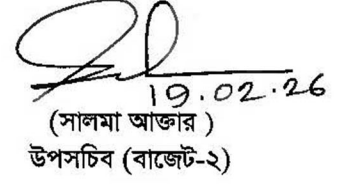 19.02.26
(সালমা আক্তার )
উপসচিব (বাজেট-২)